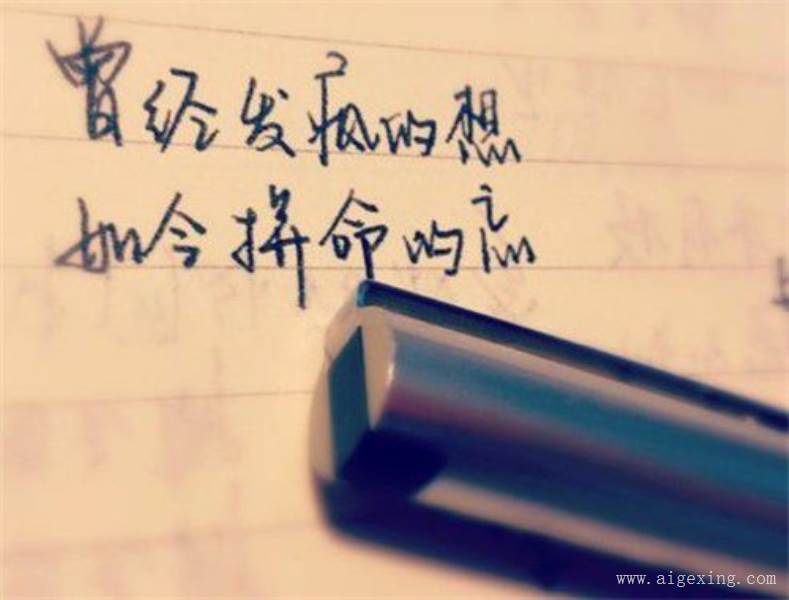 曾经发疯的想
如今拼命的忘
www.aigexing.com